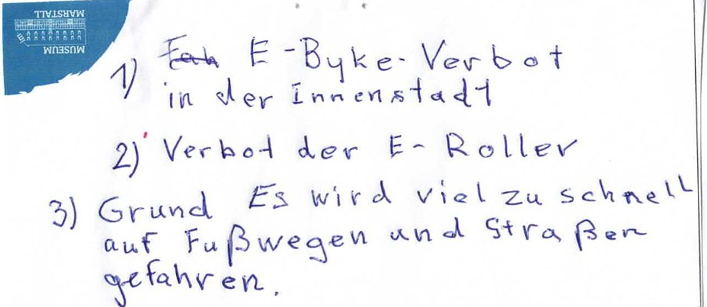 MUSEUM
MARSTALL
1) E-Byke-Verbot
in der Innenstadt
2) Verbot der E-Roller
3) Grund Es wird viel zu schnell
auf Fußwegen und Straßen
gefahren.